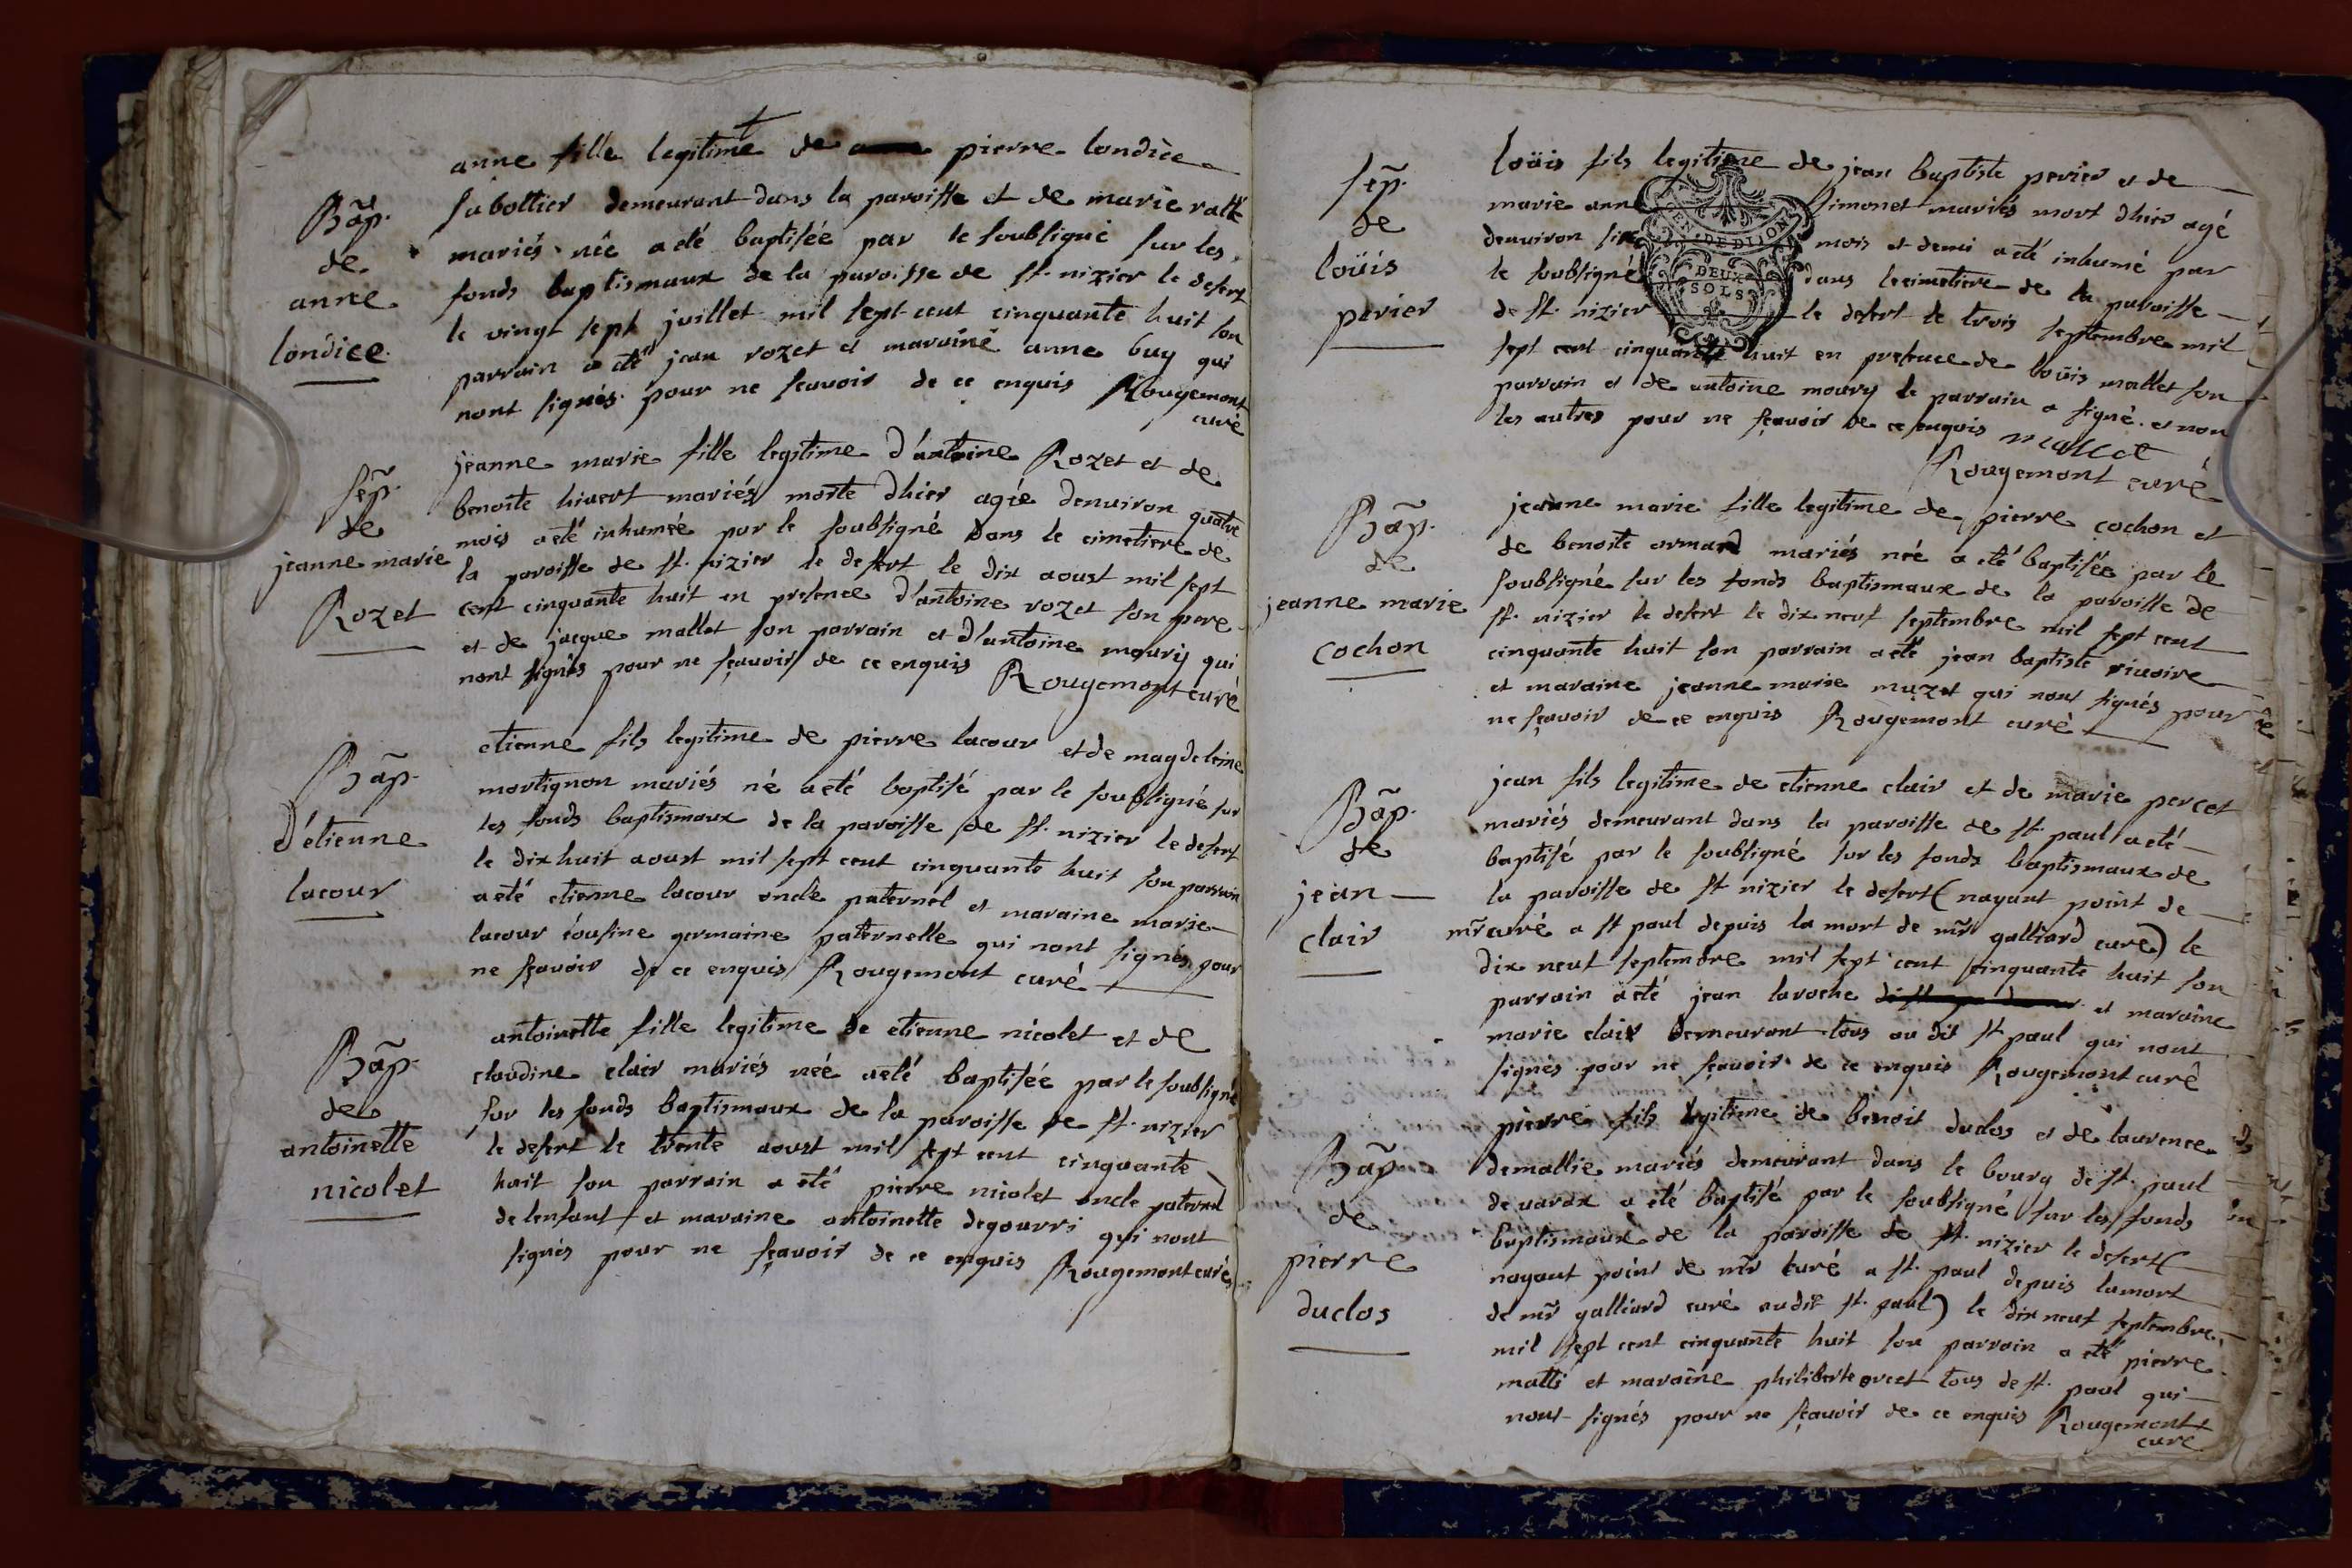 Bãp.
de
anne
londice
anne fille legitime de pierre londice
sabottier demeurant dans la paroisse et de marie ratt
mariés née a été baptisée par le soubsigné sur les
fonds baptismaux de la paroisse de st. nizier le desert
le vingt sept juillet mil sept cent cinquante huit son
parrain a été jean rozet et maraine anne buy qui
nont signés pour ne sçavoir de ce enquis Rougemont
curé
sep̃.
de
jeanne marie
Rozet
jeanne marie fille legitime d'antoine Rozet et de
benoite hivert mariés morte dhier agée denviron quatre
mois a eté inhumée par le soubsigné dans le cimetiere de
la paroisse de st. nizier le desert le dix aoust mil sept
cent cinquante huit en presence d'antoine rozet son pere
et de jacque mallet son parrain et d'antoine moury qui
nont signés pour ne sçavoir de ce enquis Rougemont curé
Bãp.
d'étienne
lacour
etienne fils legitime de pierre lacour et de magdeleine
mortignon mariés né a eté baptisé par le soubsigné sur
les fonds baptismaux de la paroisse de st. nizier le desert
le dix huit aoust mil sept cent cinquante huit son parrain
a eté etienne lacour oncle paternel et maraine marie
lacour cousine germaine paternelle qui nont signés pour
ne sçavoir de ce enquis Rougemont curé
Bãp.
de
antoinette
nicolet
antoinette fille legitime de etienne nicolet et de
claudine clair mariés née a eté baptisée par le soubsigné
sur les fonds baptismaux de la paroisse de st. nizier
le desert le trente aoust mil sept cent cinquante
huit son parrain a été pierre nicolet oncle paternel
de lenfant et maraine antoinette degourri qui nont
signés pour ne sçavoir de ce enquis Rougemont curé
sep̃.
de
loüis
perier
loüis fils legitime de jean baptiste perier et de
marie anne simonet mariés mort dhier agé
denviron six mois et demi a eté inhumé par
le soubsigné dans le cimetiere de la paroisse
de st. nizier le desert le trois septembre mil
sept cent cinquante huit en presence de loüis mallet son
parrain et de antoine moury le parrain a signé et non
les autres pour ne sçavoir de ce enquis mallet
Rougemont curé
DE DIJON
DEUX
SOLS
Bãp.
de
jeanne marie
cochon
jeanne marie fille legitime de pierre cochon et
de benoite armand mariés née a eté baptisée par le
soubsigné sur les fonds baptismaux de la paroisse de
st. nizier le desert le dix neuf septembre mil sept cent
cinquante huit son parrain a eté jean baptiste rivoire
et maraine jeanne marie muzet qui nont signés pour
ne sçavoir de ce enquis Rougemont curé
Bãp.
de
jean
clair
jean fils legitime de etienne clair et de marie percet
mariés demeurant dans la paroisse de st. paul a eté
baptisé par le soubsigné sur les fonds baptismaux de
la paroisse de st nizier le desert (nayant point de
mr̃ curé a st paul depuis la mort de mr̃ galliard curé) le
dix neuf septembre mil sept cent cinquante huit son
parrain a eté jean laroche et maraine
marie clair demeurant tous au dit st paul qui nont
signés pour ne sçavoir de ce enquis Rougemont curé
Bãp.
de
pierre
duclos
pierre fils legitime de benoit duclos et de laurence
demallie mariés demeurant dans le bourg de st. paul
de varax a été baptisé par le soubsigné sur les fonds
baptismaux de la paroisse de st. nizier le desert (
nayant point de mr̃ curé a st. paul depuis la mort
de mr̃ galliard curé audit st. paul) le dix neuf septembre
mil sept cent cinquante huit son parrain a eté pierre
matti et maraine philiberte tous de st. paul qui
nont signés pour ne sçavoir de ce enquis Rougemont
curé